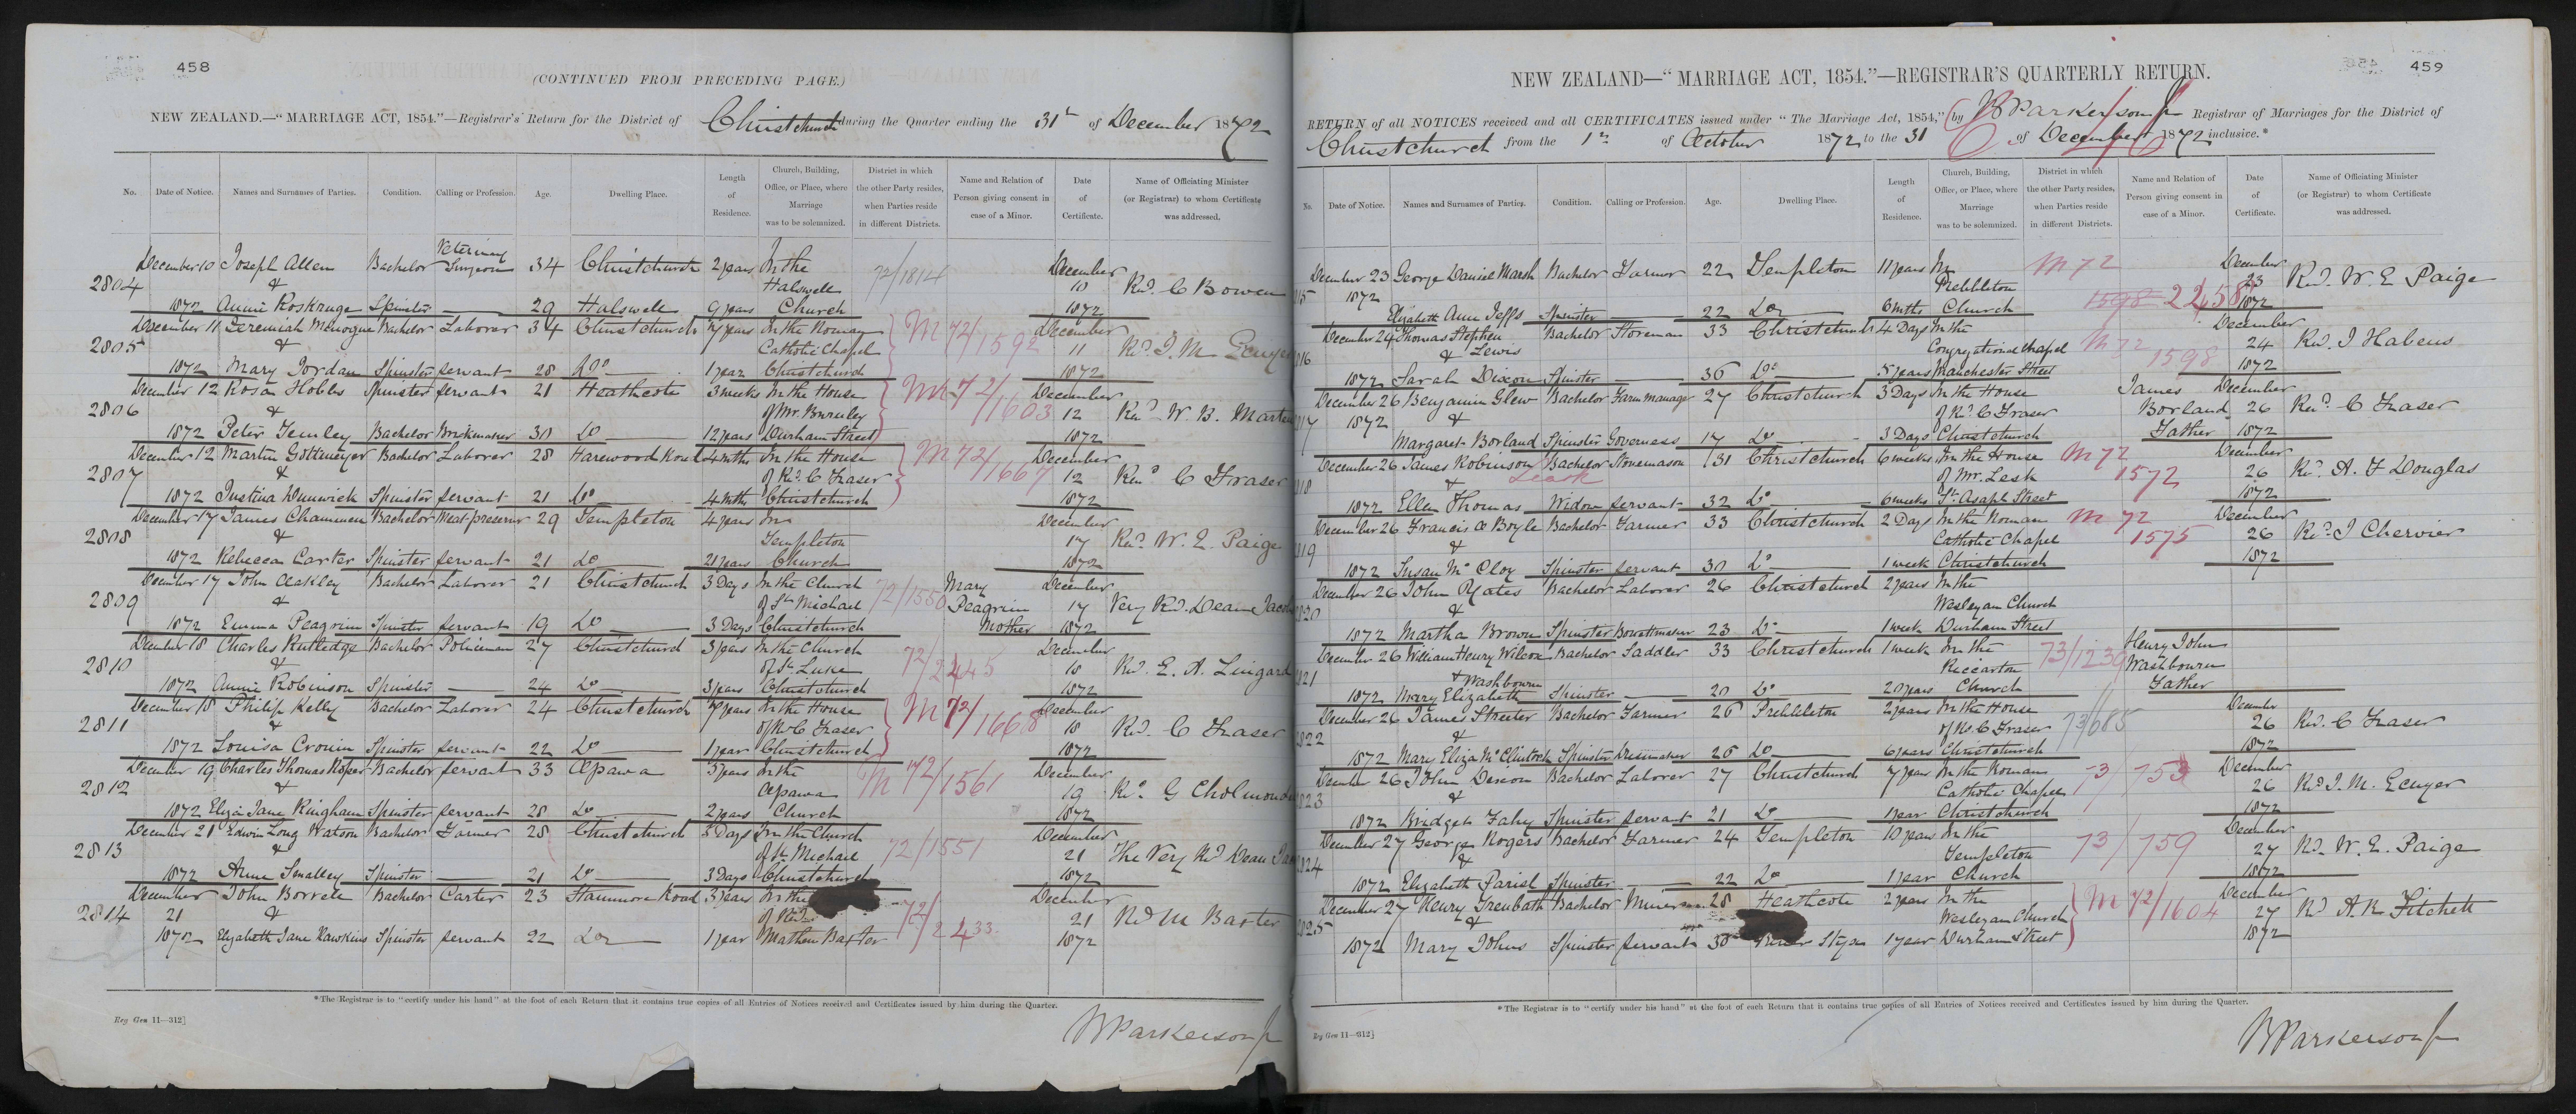 458
(CONTINUED FROM PRECEDING PAGE.)
NEW ZEALAND.—"MARRIAGE ACT, 1854."—Registrar's Return for the District of Christchurch during the Quarter ending the 31st of December 1872
No. Date of Notice. Names and Surnames of Parties. Condition. Calling or Profession. Age. Dwelling Place. Length of Residence. Church, Building, Office, or Place, where Marriage was to be solemnized. District in which the other Party resides, when Parties reside in different Districts. Name and Relation of Person giving consent in case of a Minor. Date of Certificate. Name of Officiating Minister (or Registrar) to whom Certificate was addressed.
December 10 Joseph Allen Bachelor Veterinary Surgeon 34 Christchurch 2 years In the December
2804 & Halswell 72/1814 10 Revd. C Bowen
1872 Annie Roskruge Spinster — 29 Halswell 9 years Church 1872
December 11 Jeremiah Minogue Bachelor Laborer 34 Christchurch 7 years In the Roman December
2805 & Catholic Chapel M 72/1592 11 Revd. J. M. Ecuyer
1872 Mary Jordan Spinster servant 28 Do. 1 year Christchurch 1872
December 12 Rosa Hobbs Spinster servant 21 Heathcote 3 weeks In the House December
2806 & of Mr. M 72/1603 12 Revd. W. B. Marten
1872 Peter Temley Bachelor Brickmaker 30 Do 12 years Durham Street 1872
December 12 Martin Gottmeyer Bachelor Laborer 28 Harewood Road 4 mths In the House December
2807 & of Rd. C Fraser M 72/1667 12 Revd C Fraser
1872 Justina Dunwick Spinster servant 21 Do 4 Mths Christchurch 1872
December 17 James Bachelor Meat preserver 29 Templeton 4 years In December
2808 & Templeton 17 Revd. W. E. Paige
1872 Rebecca Carter Spinster servant 21 Do 21 years Church 1872
December 17 John Oakley Bachelor Laborer 21 Christchurch 3 Days In the Church Mary December
2809 & of St. Michael 72/1550 Peagrim 17 Very Rd. Dean Jacobs
1872 Emma Peagrim Spinster servant 19 Do 3 Days Christchurch Mother 1872
December 18 Charles Rutledge Bachelor Policeman 27 Christchurch 3 years In the Church December
2810 & of St. Luke 72/2445 18 Rd. E. A. Lingard
1872 Annie Robinson Spinster — 24 Do 3 years Christchurch 1872
December 18 Philip Kelly Bachelor Laborer 24 Christchurch 7 years In the House December
2811 & of Rd C Fraser M 72/1668 18 Rd. C Fraser
1872 Louisa Cronin Spinster servant 22 Do 1 year Christchurch 1872
December 19 Charles Thomas Roper Bachelor servant 33 Opawa 3 years In the December
2812 & Opawa M 72/1561 19 Rd. G Cholmondeley
1872 Eliza Jane Ringham Spinster servant 28 Do 2 years Church 1872
December 21 Edwin Long Watson Bachelor Farmer 28 Christchurch 3 Days In the Church December
2813 & of St. Michael 72/1551 21 The Very Rd Dean
1872 Anne Smalley Spinster — 21 Do 3 Days Christchurch 1872
December John Borrell Bachelor Carter 23 Stanmore Road 3 years In the December
2814 21 & of Rd. 72/2433 21 Rd M Baxter
1872 Elizabeth Jane Hawkins Spinster servant 22 Do 1 year Mathew Baxter 1872
*The Registrar is to "certify under his hand" at the foot of each Return that it contains true copies of all Entries of Notices received and Certificates issued by him during the Quarter.
Reg Gen 11—312]
W Parkerson Jr
459
NEW ZEALAND—"MARRIAGE ACT, 1854."—REGISTRAR'S QUARTERLY RETURN.
RETURN of all NOTICES received and all CERTIFICATES issued under "The Marriage Act, 1854," by W Parkerson Jr Registrar of Marriages for the District of
Christchurch from the 1st of October 1872 to the 31 of December 1872 inclusive.*
No. Date of Notice. Names and Surnames of Parties. Condition. Calling or Profession. Age. Dwelling Place. Length of Residence. Church, Building, Office, or Place, where Marriage was to be solemnized. District in which the other Party resides, when Parties reside in different Districts. Name and Relation of Person giving consent in case of a Minor. Date of Certificate. Name of Officiating Minister (or Registrar) to whom Certificate was addressed.
December 23 George Daniel Marsh Bachelor Farmer 22 Templeton 11 years In M 72 December
15 1872 Prebbleton 1598 2258 23 Rd. W. E Paige
Elizabeth Ann Jeffs Spinster — 22 Do 6 mths Church 1872
December 24 Thomas Stephen Bachelor Storeman 33 Christchurch 4 Days In the December
16 & Lewis Congregational Chapel M 72 1598 24 Revd. J Habens
1872 Sarah Dixon Spinster — 36 Do 5 years Manchester Street 1872
December 26 Benjamin Glew Bachelor Farm manager 27 Christchurch 3 Days In the House James December
17 1872 & of Rd. C Fraser Borland 26 Revd C Fraser
Margaret Borland Spinster Governess 17 Do 3 Days Christchurch Father 1872
December 26 James Robinson Bachelor Stonemason 31 Christchurch 6 weeks In the House M 72 December
18 & Leask of Mr. Lesk 1572 26 Revd. A. F Douglas
1872 Ellen Thomas Widow servant 32 Do 6 weeks St. Asaph Street 1872
December 26 Francis O Boyle Bachelor Farmer 33 Christchurch 2 Days In the Roman M 72 December
19 & Catholic Chapel 1575 26 Revd. J Chervier
1872 Susan Mc Cloy Spinster servant 30 Do 1 week Christchurch 1872
December 26 John Yates Bachelor Laborer 26 Christchurch 2 years In the
20 & Wesleyan Church
1872 Martha Brown Spinster 23 Do 1 week Durham Street
December 26 William Henry Wilcox Bachelor Saddler 33 Christchurch 1 week In the Henry John
21 & Washbourn Riccarton 73/1239 Washbourn
1872 Mary Elizabeth Spinster — 20 Do 20 years Church Father
December 26 James Streeter Bachelor Farmer 26 Prebbleton 2 years In the House December
22 & of Rd. C Fraser 73/685 26 Rd. C Fraser
1872 Mary Eliza McClintock Spinster Dressmaker 26 Do 6 years Christchurch 1872
December 26 John Bachelor Laborer 27 Christchurch 7 years In the Roman December
23 & Catholic Chapel 73/753 26 Rd J. M. Ecuyer
1872 Bridget Fahy Spinster servant 21 Do 1 year Christchurch 1872
December 27 George Rogers Bachelor Farmer 24 Templeton 10 years In the December
24 & Templeton 73/759 27 Rd. W. E. Paige
1872 Elizabeth Parish Spinster — 22 Do 1 year Church 1872
December 27 Henry Trenbath Bachelor 28 Heathcote 2 years In the December
25 & Wesleyan Church M 72/1604 27 Rd A. R. Fitchett
1872 Mary Johns Spinster servant 30 Styx 1 year Durham Street 1872
*The Registrar is to "certify under his hand" at the foot of each Return that it contains true copies of all Entries of Notices received and Certificates issued by him during the Quarter.
Reg Gen 11—312]
W Parkerson Jr